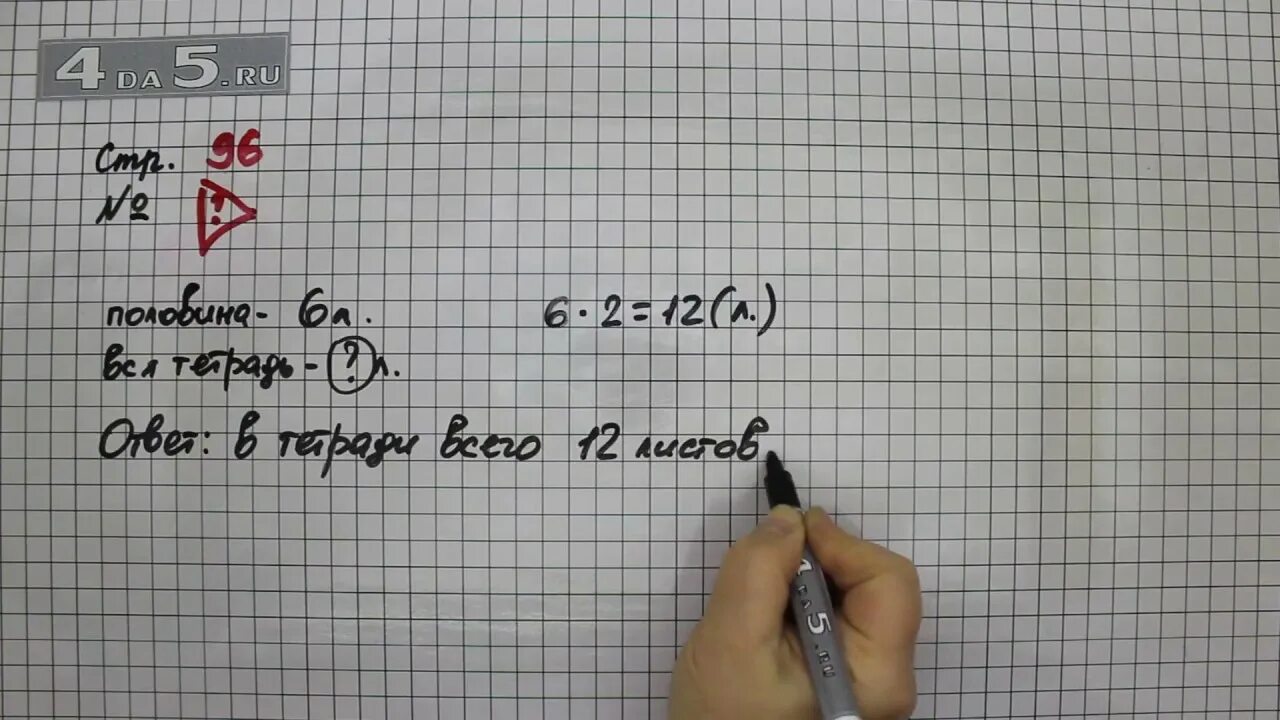 4 DA 5.RU
Стр. 96
№ ?
половина- 6л. 6 · 2 = 12 (л.)
вся тетрадь - ? л.
Ответ: в тетради всего 12 листов.
4 DA 5.RU